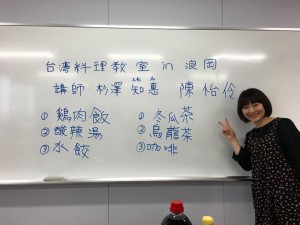 台湾料理教室 in 浪岡
講師:杉澤 知恵 陳怡伶
① 鶏肉飯
② 酸辣湯
③ 水餃
① 冬瓜茶
② 烏龍茶
③ 咖啡